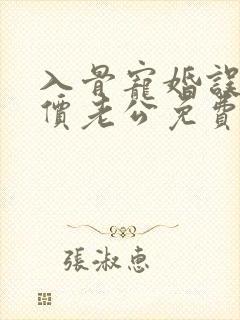 入骨寵婚誤
價老公免費
張淑惠